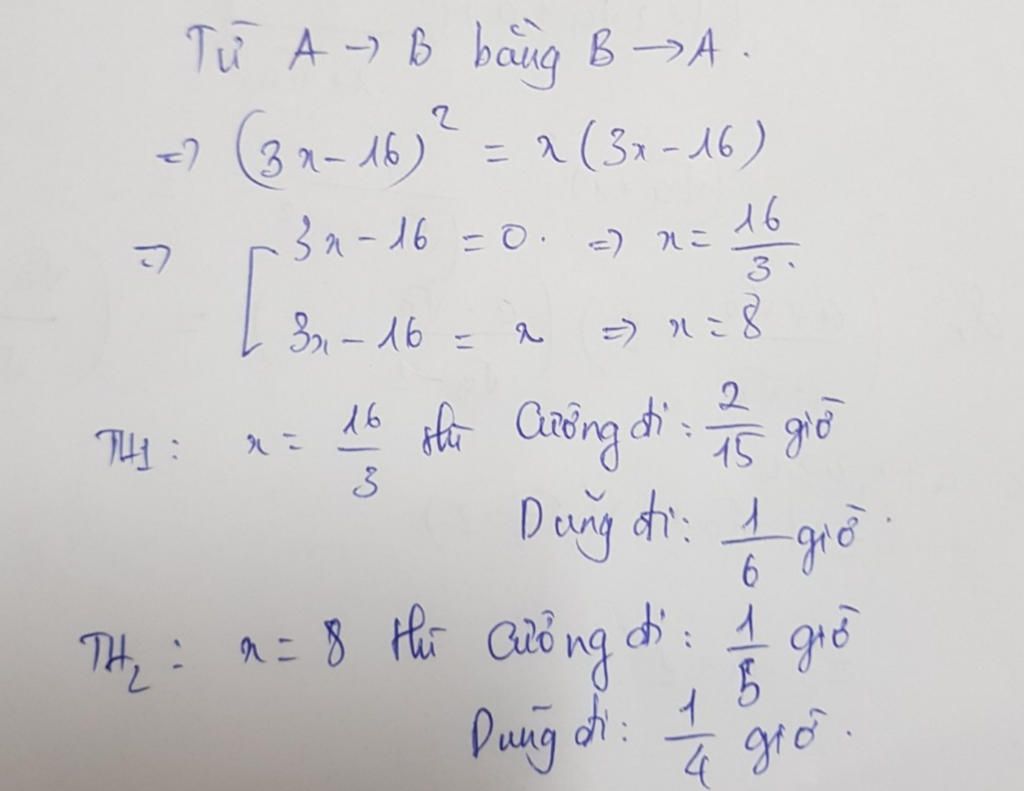 Từ A → B bằng B → A.
=> (3x - 16)² = x(3x - 16)
=> [ 3x - 16 = 0. => x = 16/3.
3x - 16 = x => x = 8
TH1: x = 16/3 thì Cường đi: 2/15 giờ
Dũng đi: 1/6 giờ.
TH2: x = 8 thì Cường đi: 1/5 giờ
Dũng đi: 1/4 giờ.